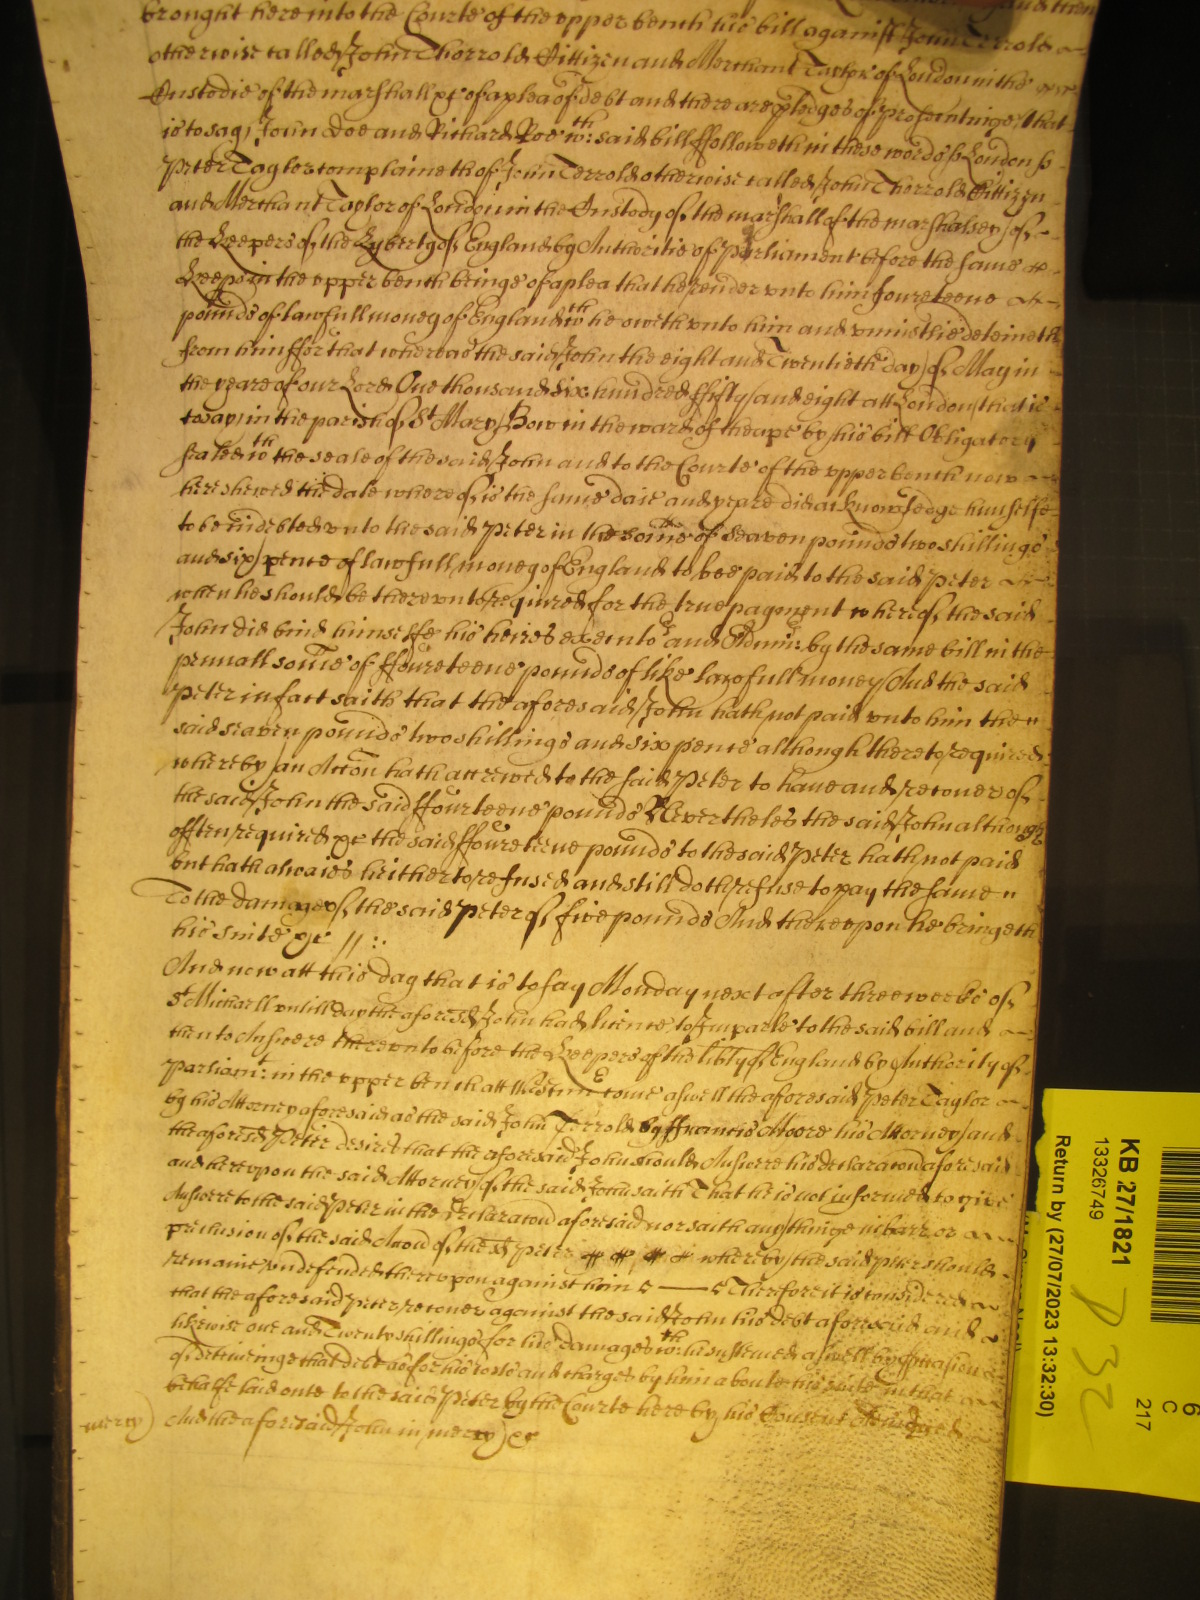 brought here into the Courte of the upper bench his bill against John Terrold
otherwise called John Thorrold Cittizen and Merchant Taylor of London in the
Custodie of the marshall &c of a plea of debt and there are pledges of prosecutinge that
is to say John Doe and Richard Roe wth: said bill ffolloweth in these words ss London ss
Peter Taylor complaineth of John Terrold otherwise called John Thorrold Cittizen
and Merchant Taylor of London in the Custody of the marshall of the marshalsey of
the Keepers of the Lyberty of England by Authoritie of Parliament before the same
Keeps in the upper bench beinge of a plea that he render unto him foureteene
pounds of lawfull money of England wth he oweth unto him and uniustlie deteineth
from him ffor that whereas the said John the eight and Twentieth day of May in
the yeare of our Lord One thousand six hundred ffifty and eight att London that is
to say in the parish of St Mary Bow in the ward of cheape by his bill Obligatory
sealed wth the seale of the said John and to the Courte of the upper bench now
here shewed the date whereof is the same daie and yeare did acknowledge himselfe
to be indebted unto the said Peter in the some of seaven pounds two shillings
and six pence of lawfull money of England to bee paid to the said Peter
when he should be thereunto required for the true payment whereof the said
John did bind himselfe his heires executors and Admrs: by the same bill in the
penall some of ffoureteene pounds of like lawfull money And the said
Peter in fact saith that the aforesaid John hath not paid unto him the
said seaven pounds two shillings and six pence although thereto required
whereby an Accon hath accrewed to the said Peter to have and recover of
the said John the said ffourteene pounds Neverthelés the said John although
often required &c the said ffoureteene pounds to the said Peter hath not paid
but hath alwaies hitherto refused and still doth refuse to pay the same
To the damage of the said Peter of five pounds And thereupon he bringeth
his suite &c // :.
And now att this day that is to say Monday next after three weeks of
St Michaell untill day the aforesd John had licence to Imparle to the said bill and
then to Answere thereunto before the Keepers of the libty of England by Authority of
Parliamt: in the upper bench att Westmr come aswell the aforesaid Peter Taylor
by his Attorney aforesaid as the said John Terrold by ffrancis Moore his Attorney and
the aforesd Peter desires that the aforesaid John should Answere his declaracon aforesaid
and hereupon the said Attorney of the said John saith That he is not informed to give
Answere to the said Peter in the declaracon aforesaid nor saith any thinge in barr or
preclusion of the said Accon of the sd Peter whereby the said Peter should
remaine undefended thereupon against him Therefore it is considered
that the aforesaid Peter recover against the said John his debt aforesaid and
likewise one and Twenty shillings for his damages wth: he susteined aswell by occasion
of deteineinge that debt as for his costs and charges by him aboute his suite in that
behalfe laid oute to the said Peter by the Courte here by his Consent Adiudged
And the aforesaid John in mercy &c
mercy
KB 27/1821
13326749
Return by (27/07/2023 13:32:30)
6
C
217